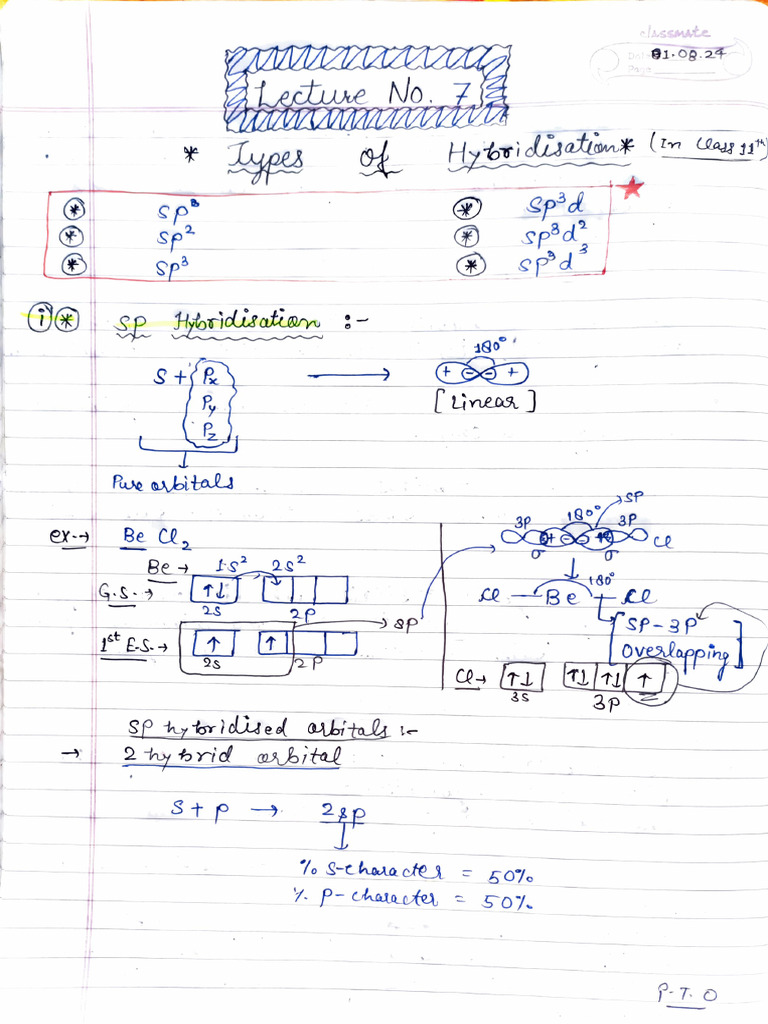 classmate
Date 01.08.24
Page
Lecture No. 7
* Types of Hybridisation * (In Class 11th)
* sp * sp³d
* sp² * sp³d²
* sp³ * sp³d³
i * sp Hybridisation :-
180°
S + Px → + - - +
Py [Linear]
Pz
Pure orbitals
SP
3p 180° 3p
+ - - + Cl
σ σ
ex.→ BeCl₂
Be → 1s² 2s²
G.S. → ↑↓
2s 2p
180°
Cl — Be — Cl
1st E.S. → ↑ ↑ → sp
2s 2p
[SP-3P Overlapping]
Cl → ↑↓ ↑↓ ↑↓ ↑
3s 3p
SP hybridised orbitals :-
→ 2 hybrid orbital
S + p → 2sp
% S-character = 50%
% P-character = 50%
P.T.O